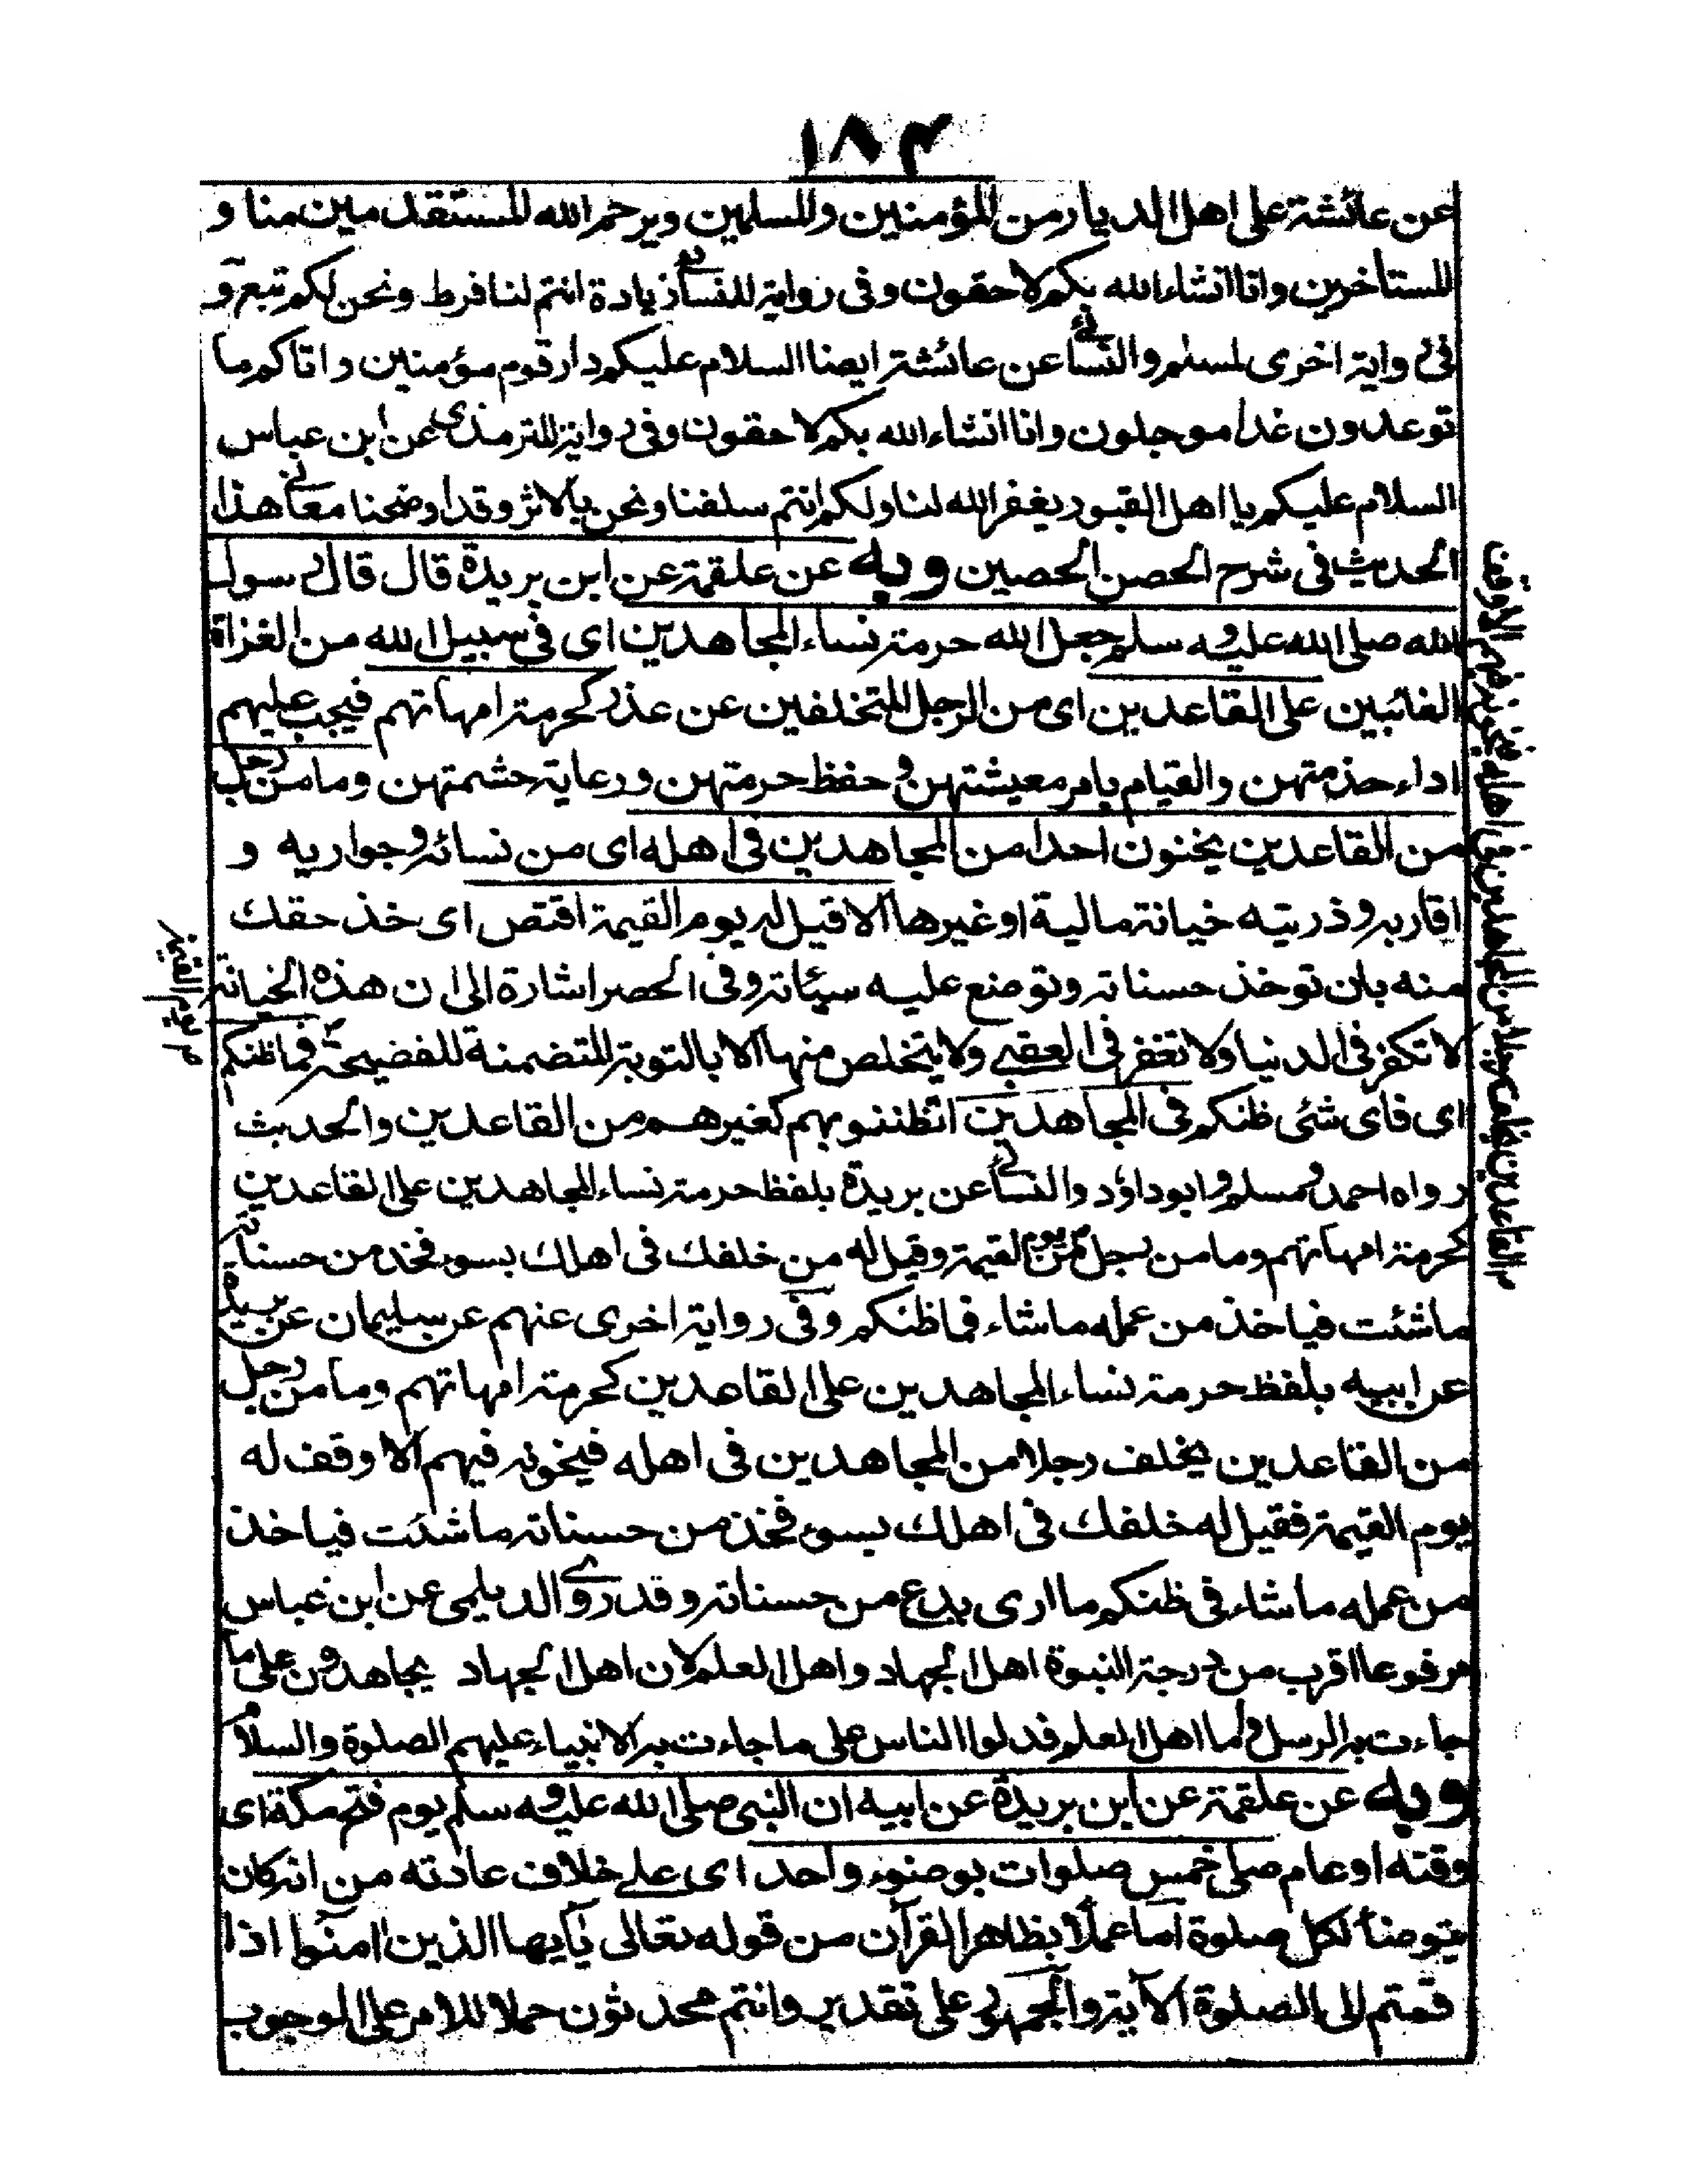 ١٨٤
عن عائشة على اهل الديار من المؤمنين والمسلمين ويرحم الله المستقدمين منا و
المستاخرين وانا انشاء الله بكم لاحقون وفى رواية للنسائى زيادة انتم لنا فرط ونحن لكم تبع و
فى رواية اخرى لمسلم والنسائى عن عائشة ايضا السلام عليكم دار قوم مؤمنين واتاكم ما
توعدون غدا موجلون وانا انشاء الله بكم لاحقون وفى رواية للترمذى عن ابن عباس
السلام عليكم يا اهل القبور يغفر الله لنا ولكم انتم سلفنا ونحن بالاثر وقد اوضحنا معانى هذا
الحديث فى شرح الحصن الحصين وبه عن علقمة عن ابن بريدة قال قال رسول
الله صلى الله عليه وسلم جعل الله حرمة نساء المجاهدين اى فى سبيل الله من الغزاة
الغائبين على القاعدين اى من الرجل المتخلفين عن عذر كحرمة امهاتهم فيجب عليهم
اداء خدمتهن والقيام بامر معيشتهن وحفظ حرمتهن ورعاية حشمتهن وما من رجل
من القاعدين يخنون احدا من المجاهدين فى اهله اى من نسائه وجواريه و
اقاربه وذريته خيانة مالية او غيرها الا قيل له يوم القيمة اقتص اى خذ حقك
منه بان توخذ حسناته وتوضع عليه سيئاته وفى الحصر اشارة الى ان هذه الخيانة
لا تكفر فى الدنيا ولا تغفر فى العقبے ولا يتخلص منها الا بالتوبة المتضمنة للفضيحة فما ظنكم
اى فاى شئى ظنكم فى المجاهدين اتظننو بهم كغيرهم من القاعدين والحديث
رواه احمد ومسلم وابو داؤد والنسائى عن بريدة بلفظ حرمة نساء المجاهدين على القاعدين
كحرمة امهاتهم وما من رجل من يوم القيمة وقيل له من خلفك فى اهلك بسوء فخذ من حسناته
ما شئت فياخذ من عمله ما شاء فما ظنكم وفى رواية اخرى عنهم عن سليمان عن بريدة
عن ابيه بلفظ حرمة نساء المجاهدين على القاعدين كحرمة امهاتهم وما من رجل
من القاعدين يخلف رجلا من المجاهدين فى اهله فيخونه فيهم الا وقف له
يوم القيمة فقيل له خلفك فى اهلك بسوء فخذ من حسناته ما شئت فياخذ
من عمله ما شاء فى ظنكم ما ارى يدع من حسناته وقد روى الديلمى عن ابن عباس
مرفوعا اقرب من درجة النبوة اهل الجهاد واهل العلم لان اهل الجهاد يجاهدون على ما
جاءت به الرسل واما اهل العلم فدلوا الناس على ما جاءت به الانبياء عليهم الصلوة والسلام
وبه عن علقمة عن ابن بريدة عن ابيه ان النبى صلى الله عليه وسلم يوم فتح مكة اى
وقته او عام صلى خمس صلوات بوضوء واحد اى علے خلاف عادته من انه كان
يتوضأ لكل صلوة اما عملا بظاهر القرآن من قوله تعالى يآيها الذين امنوا اذا
قمتم الى الصلوة الآية والجمهور على تقدير وانتم محدثون حملا للامر على الوجوب
من القاعدين يخلف رجلا من المجاهدين فى اهله فيخونه فيهم الا وقف
يوم القيمة